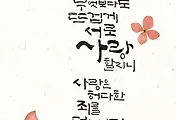 무엇보다도
뜨겁게
서로
사랑
할지니
사랑은
허다한
죄를